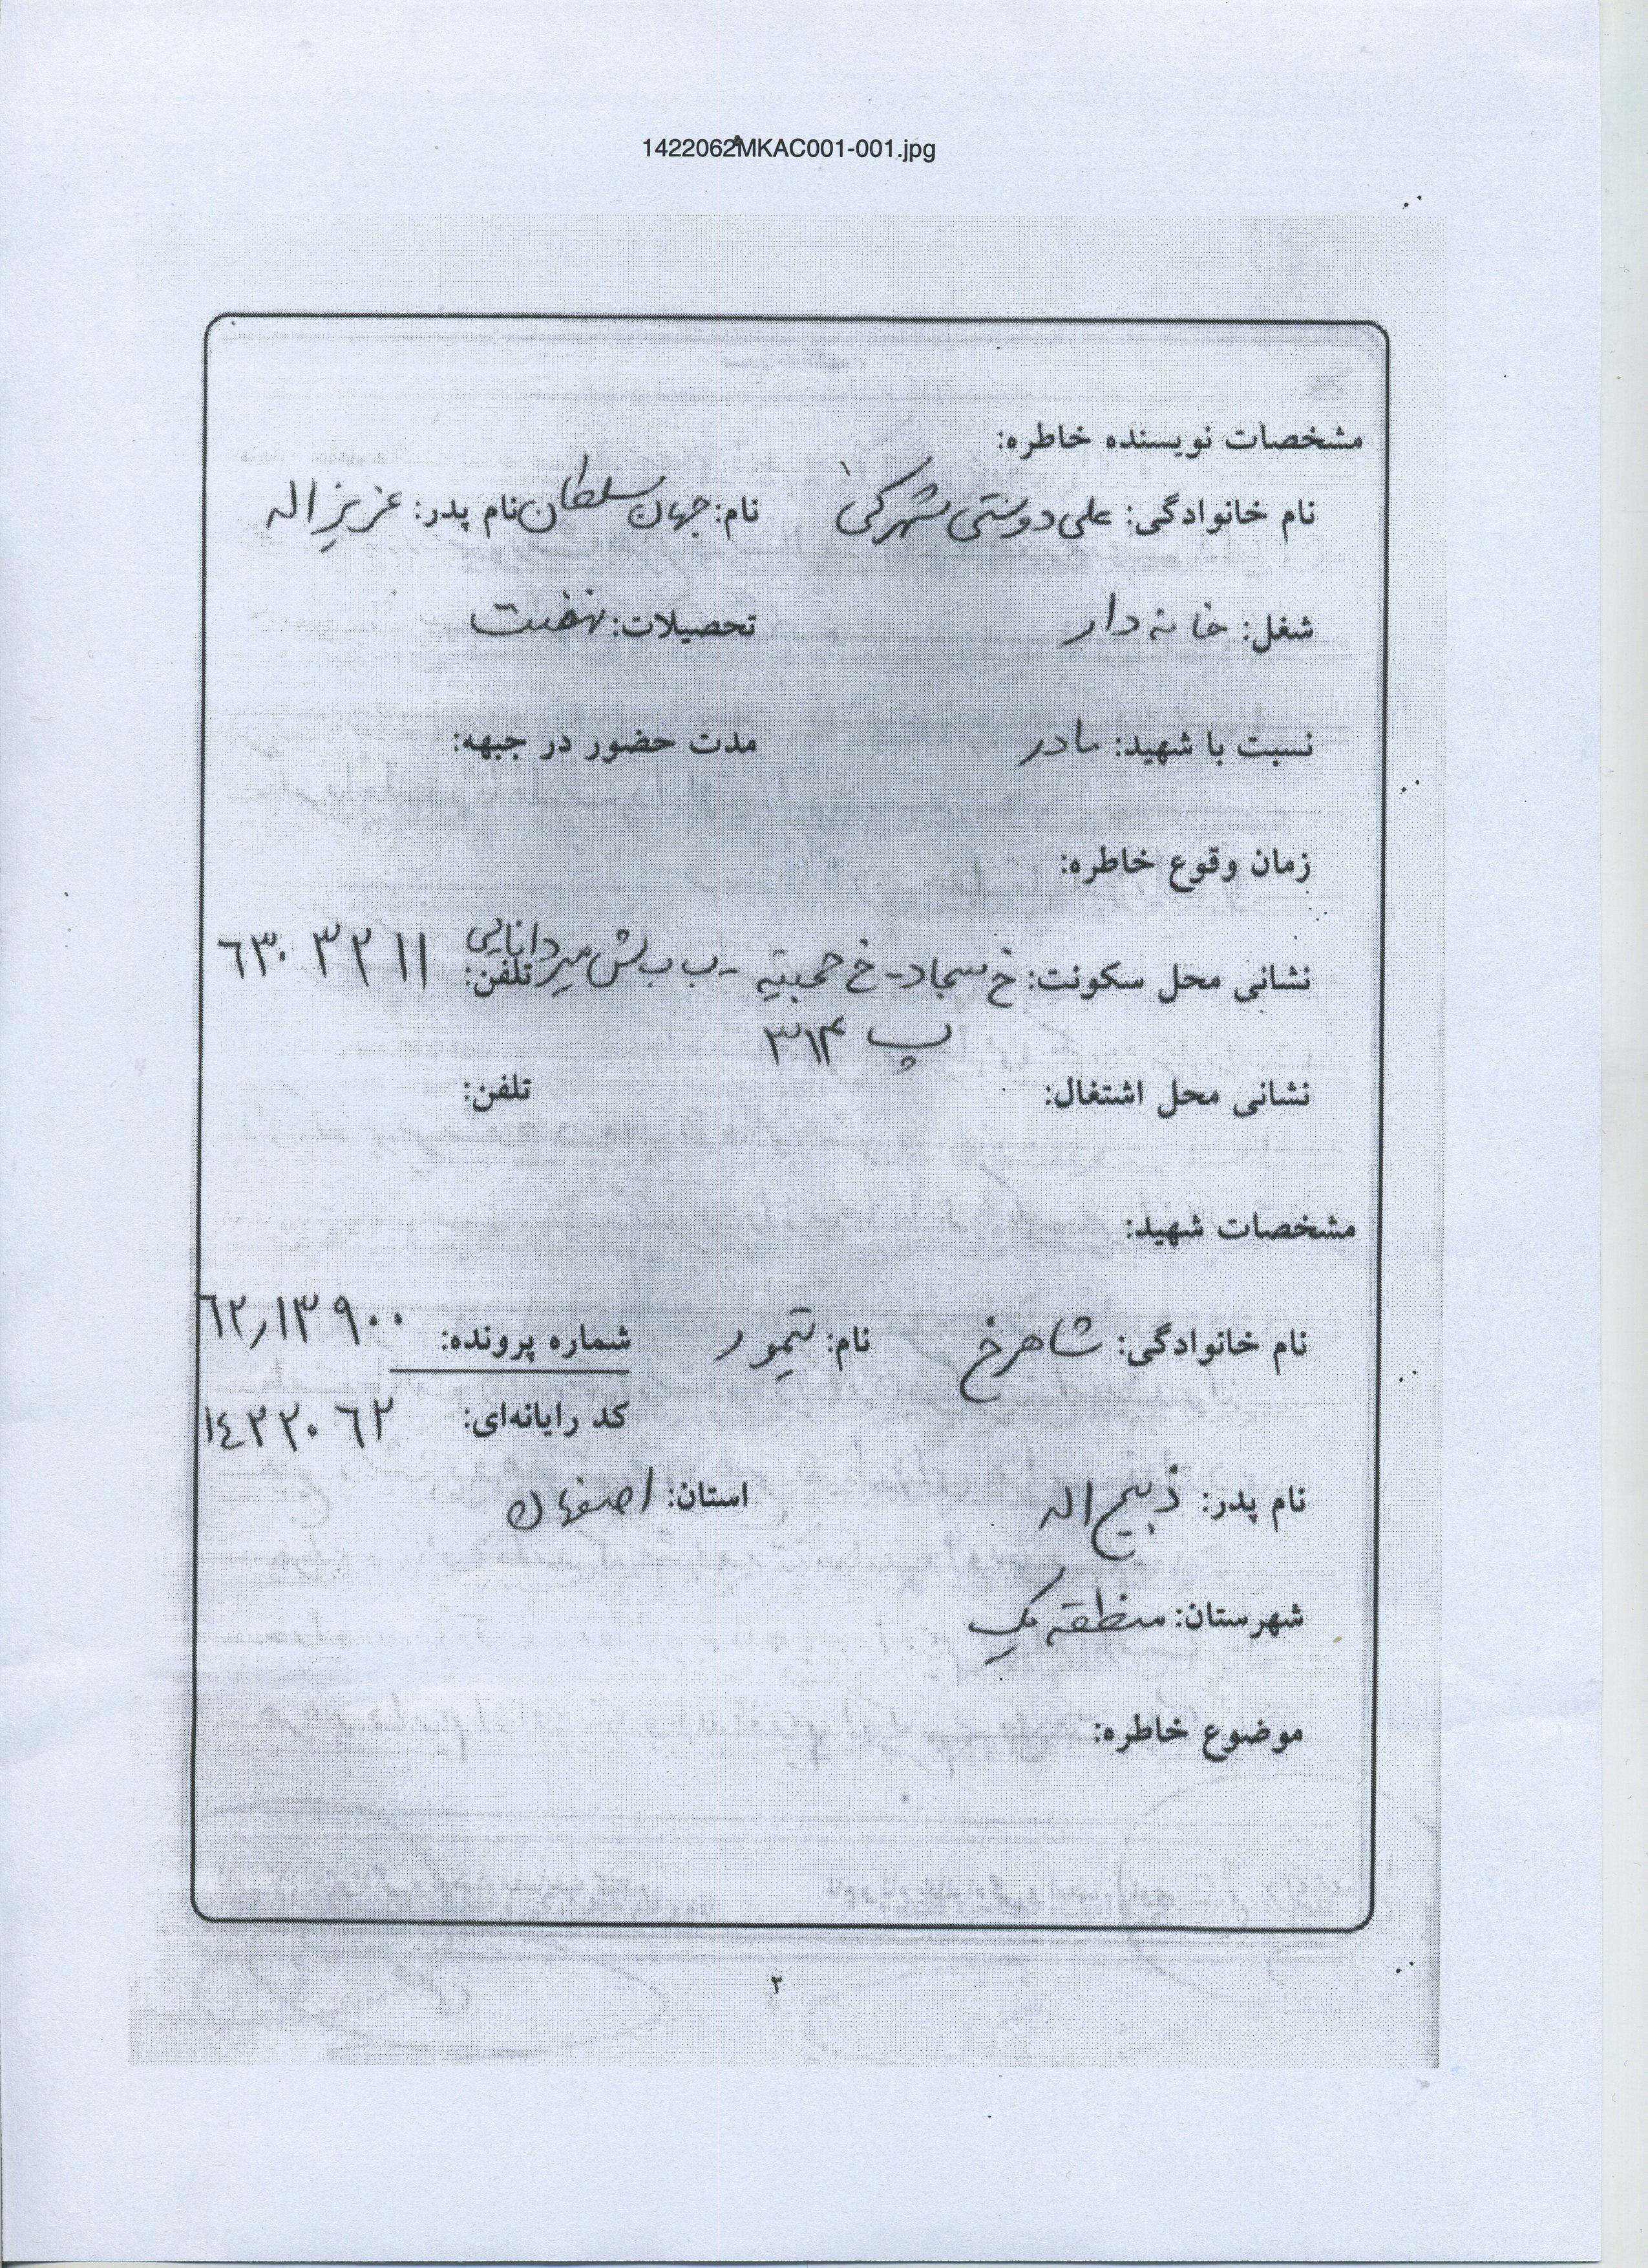 1422062MKAC001-001.jpg
مشخصات نویسنده خاطره:
نام خانوادگی: علی دوستی شهرکی نام: جهان سلطان نام پدر: عزیز اله
شغل: خانه دار تحصیلات: نهضت
نسبت با شهید: مادر مدت حضور در جبهه:
زمان وقوع خاطره:
نشانی محل سکونت: خ سجاد - خ - ب ب تلفن: ٦٣٠٣٢١١
پ ٣١٣
نشانی محل اشتغال: تلفن:
مشخصات شهید:
نام خانوادگی: شاهرخ نام: تیمور شماره پرونده: ٦٢,١٣٩٠٠
کد رایانه‌ای: ١٤٢٢٠٦٢
نام پدر: ذبیح اله استان: اصفهان
شهرستان: منطقه یک
موضوع خاطره:
٢